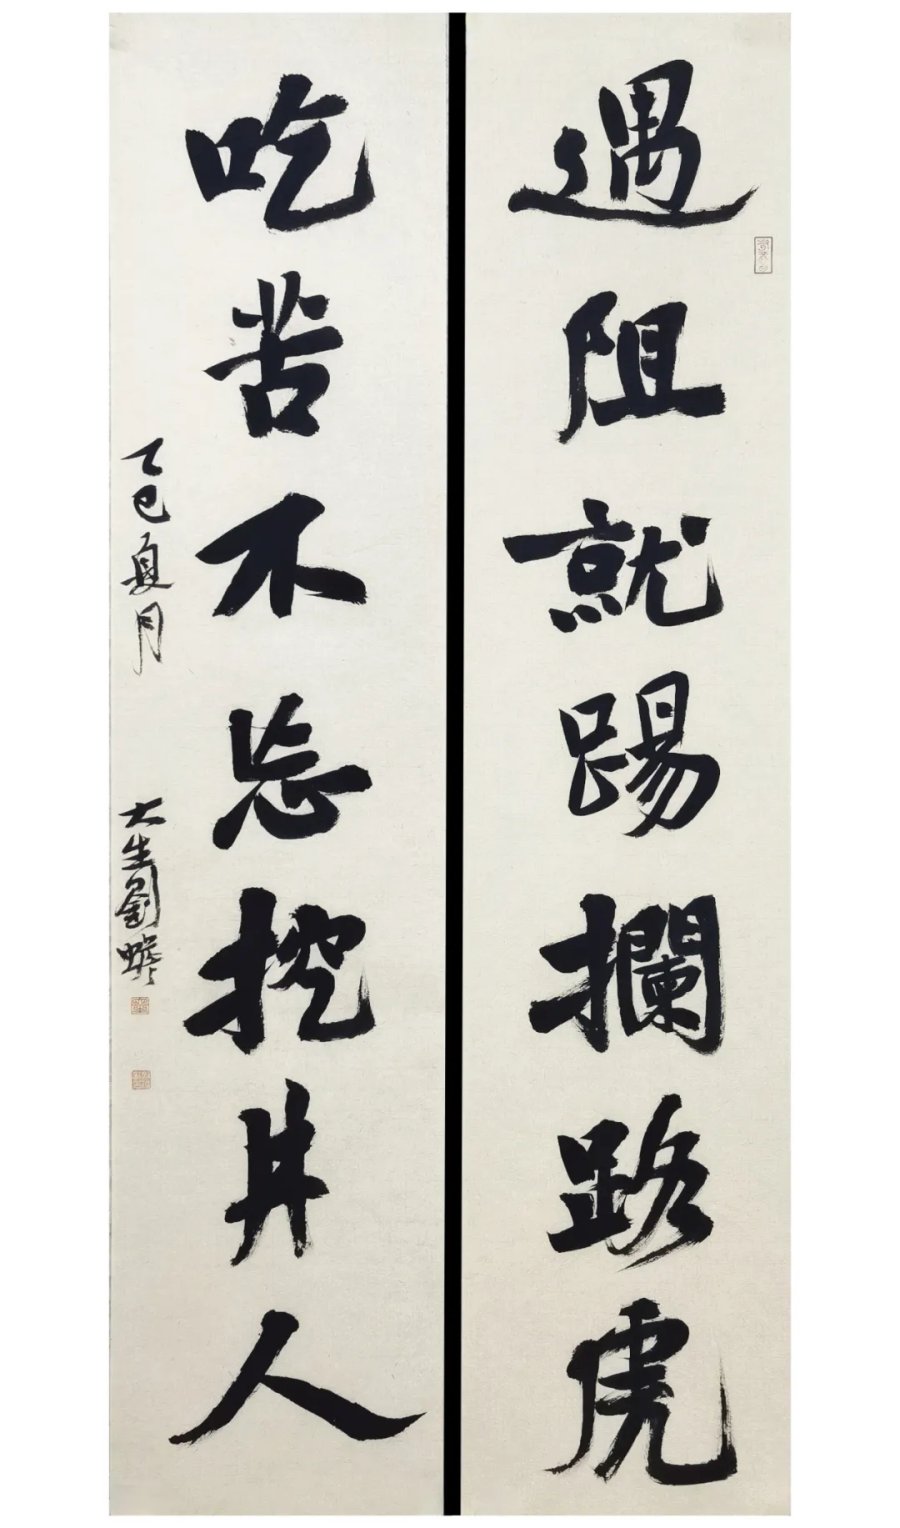 遇阻就踢攔路虎
吃苦不忘挖井人
乙巳夏月
大生劉蟾